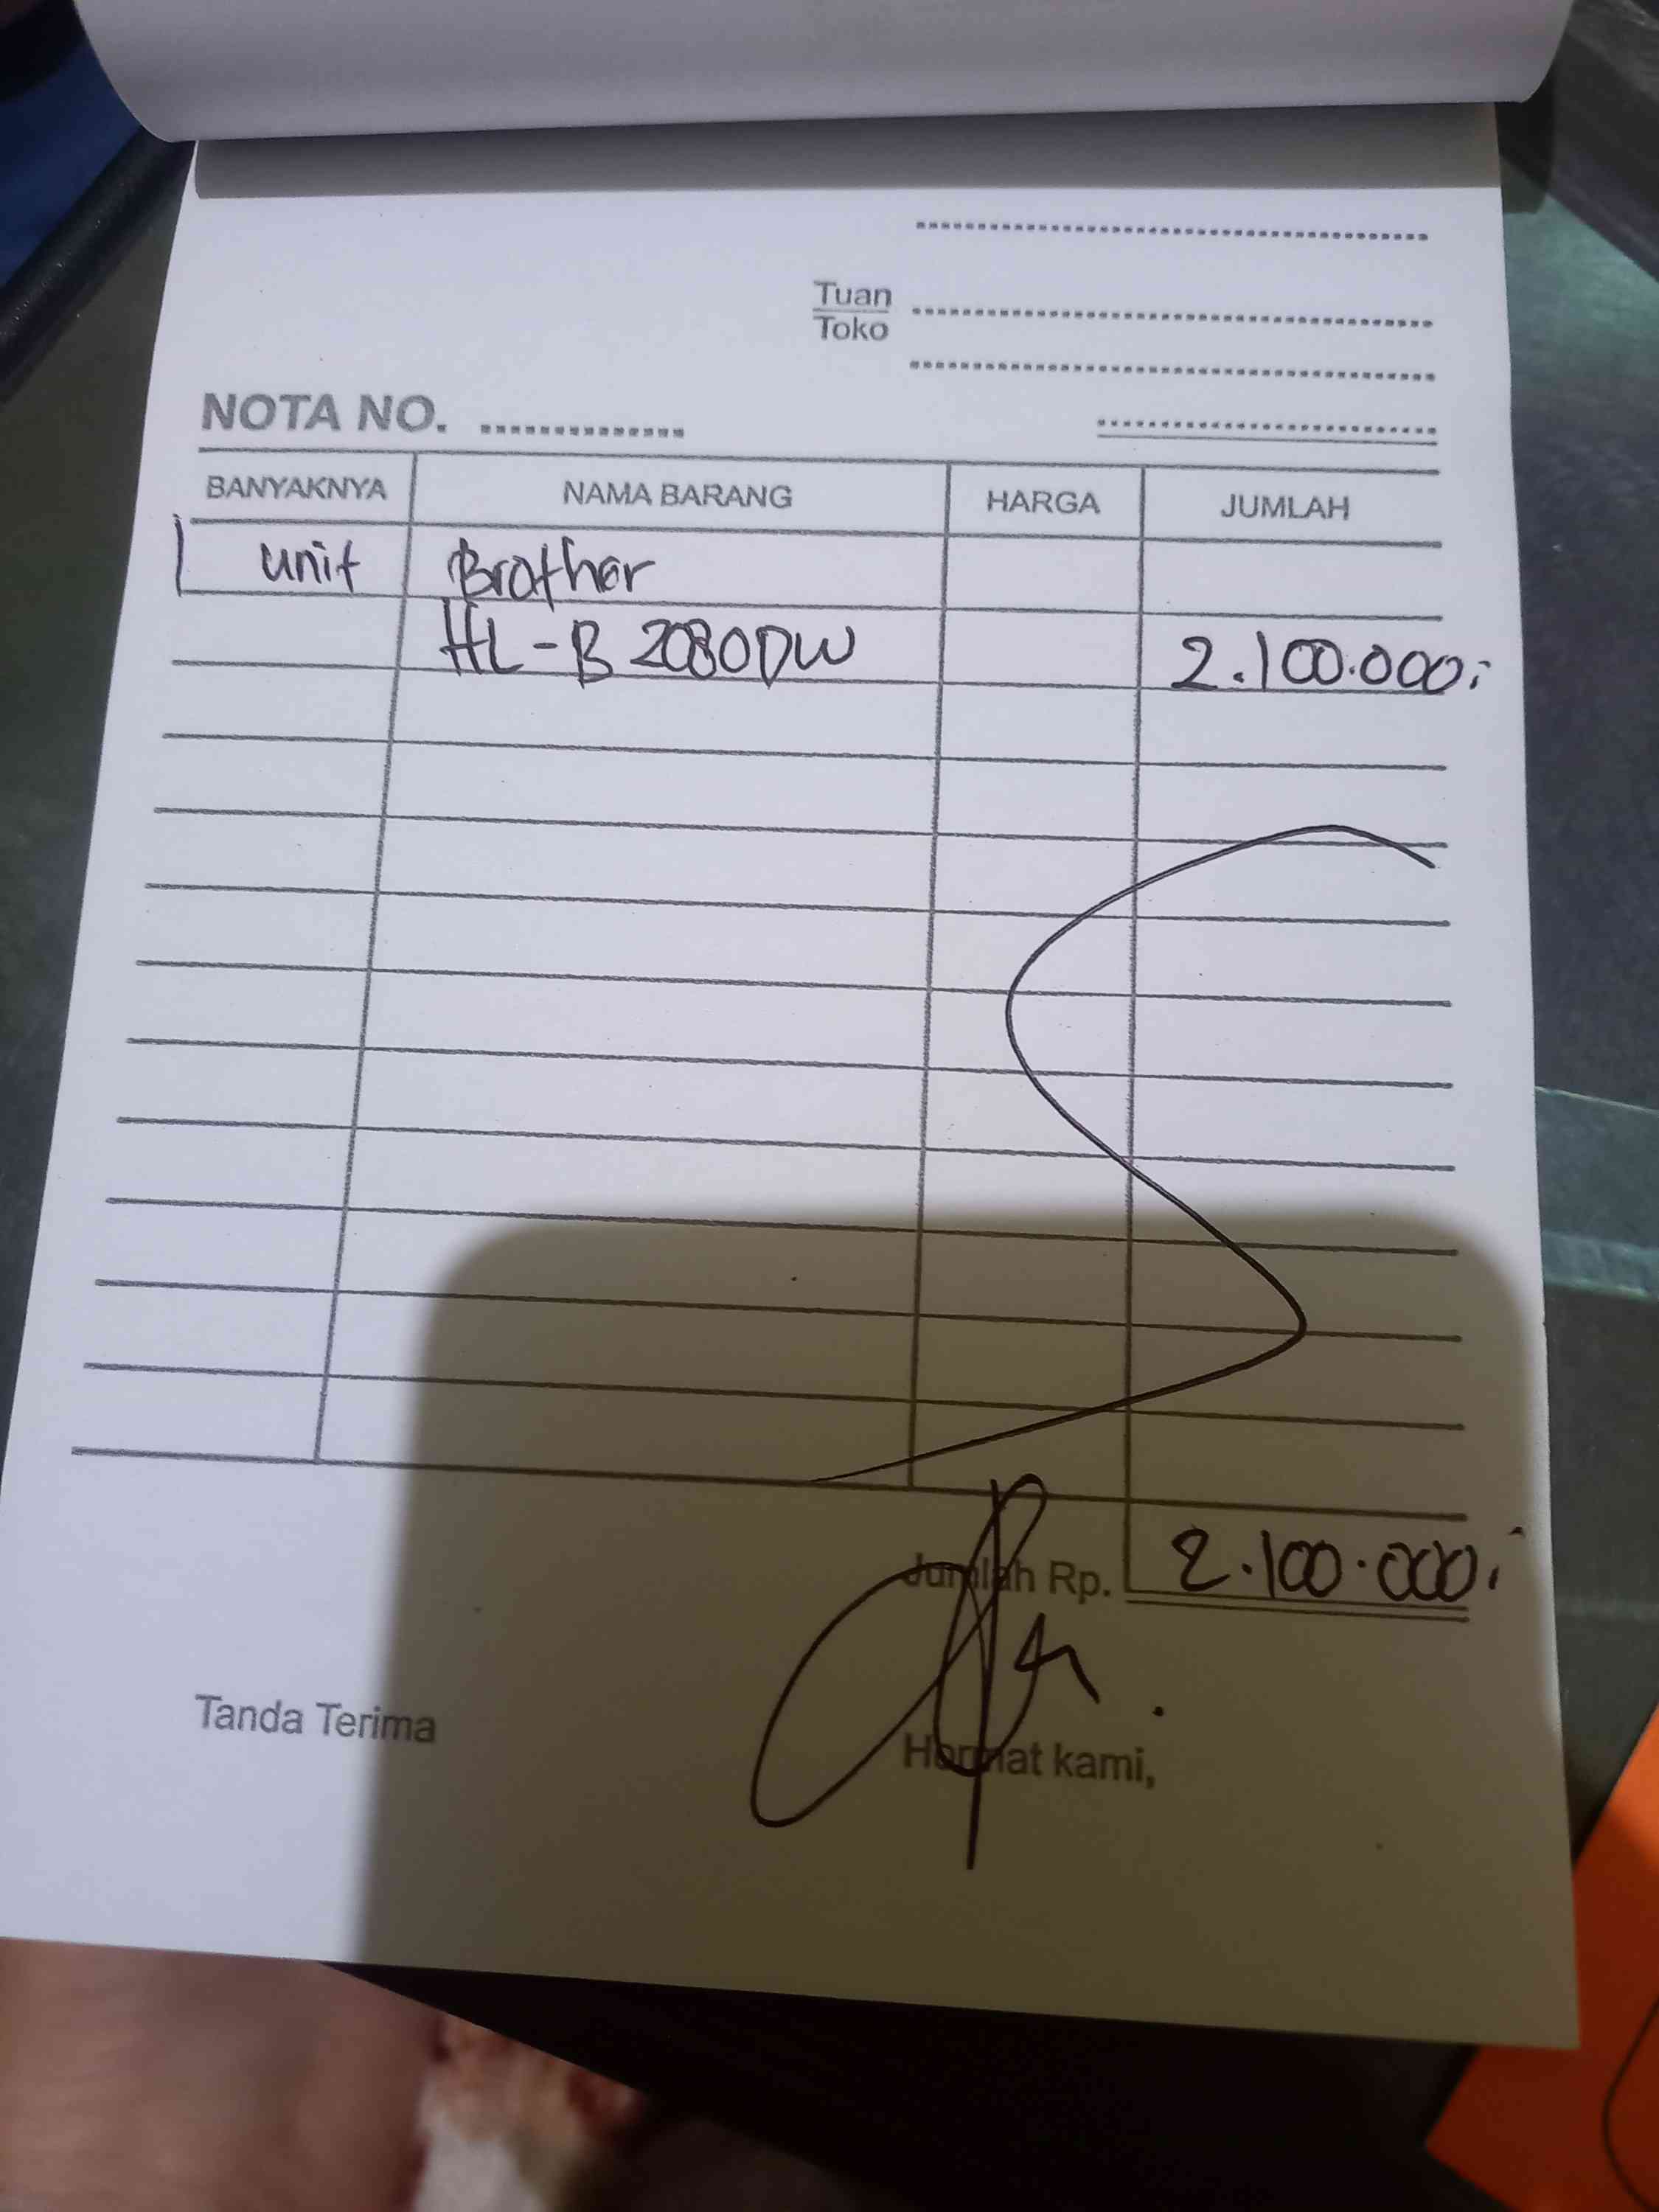 Tuan
Toko
NOTA NO.
BANYAKNYA NAMA BARANG HARGA JUMLAH
1 unit Brother
HL-B 2080DW 2.100.000,-
Jumlah Rp. 2.100.000,-
Tanda Terima Hormat kami,